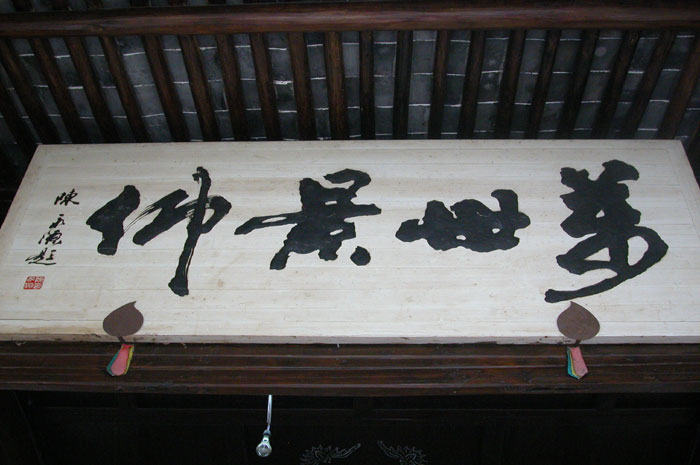 萬世景仰
陳 題